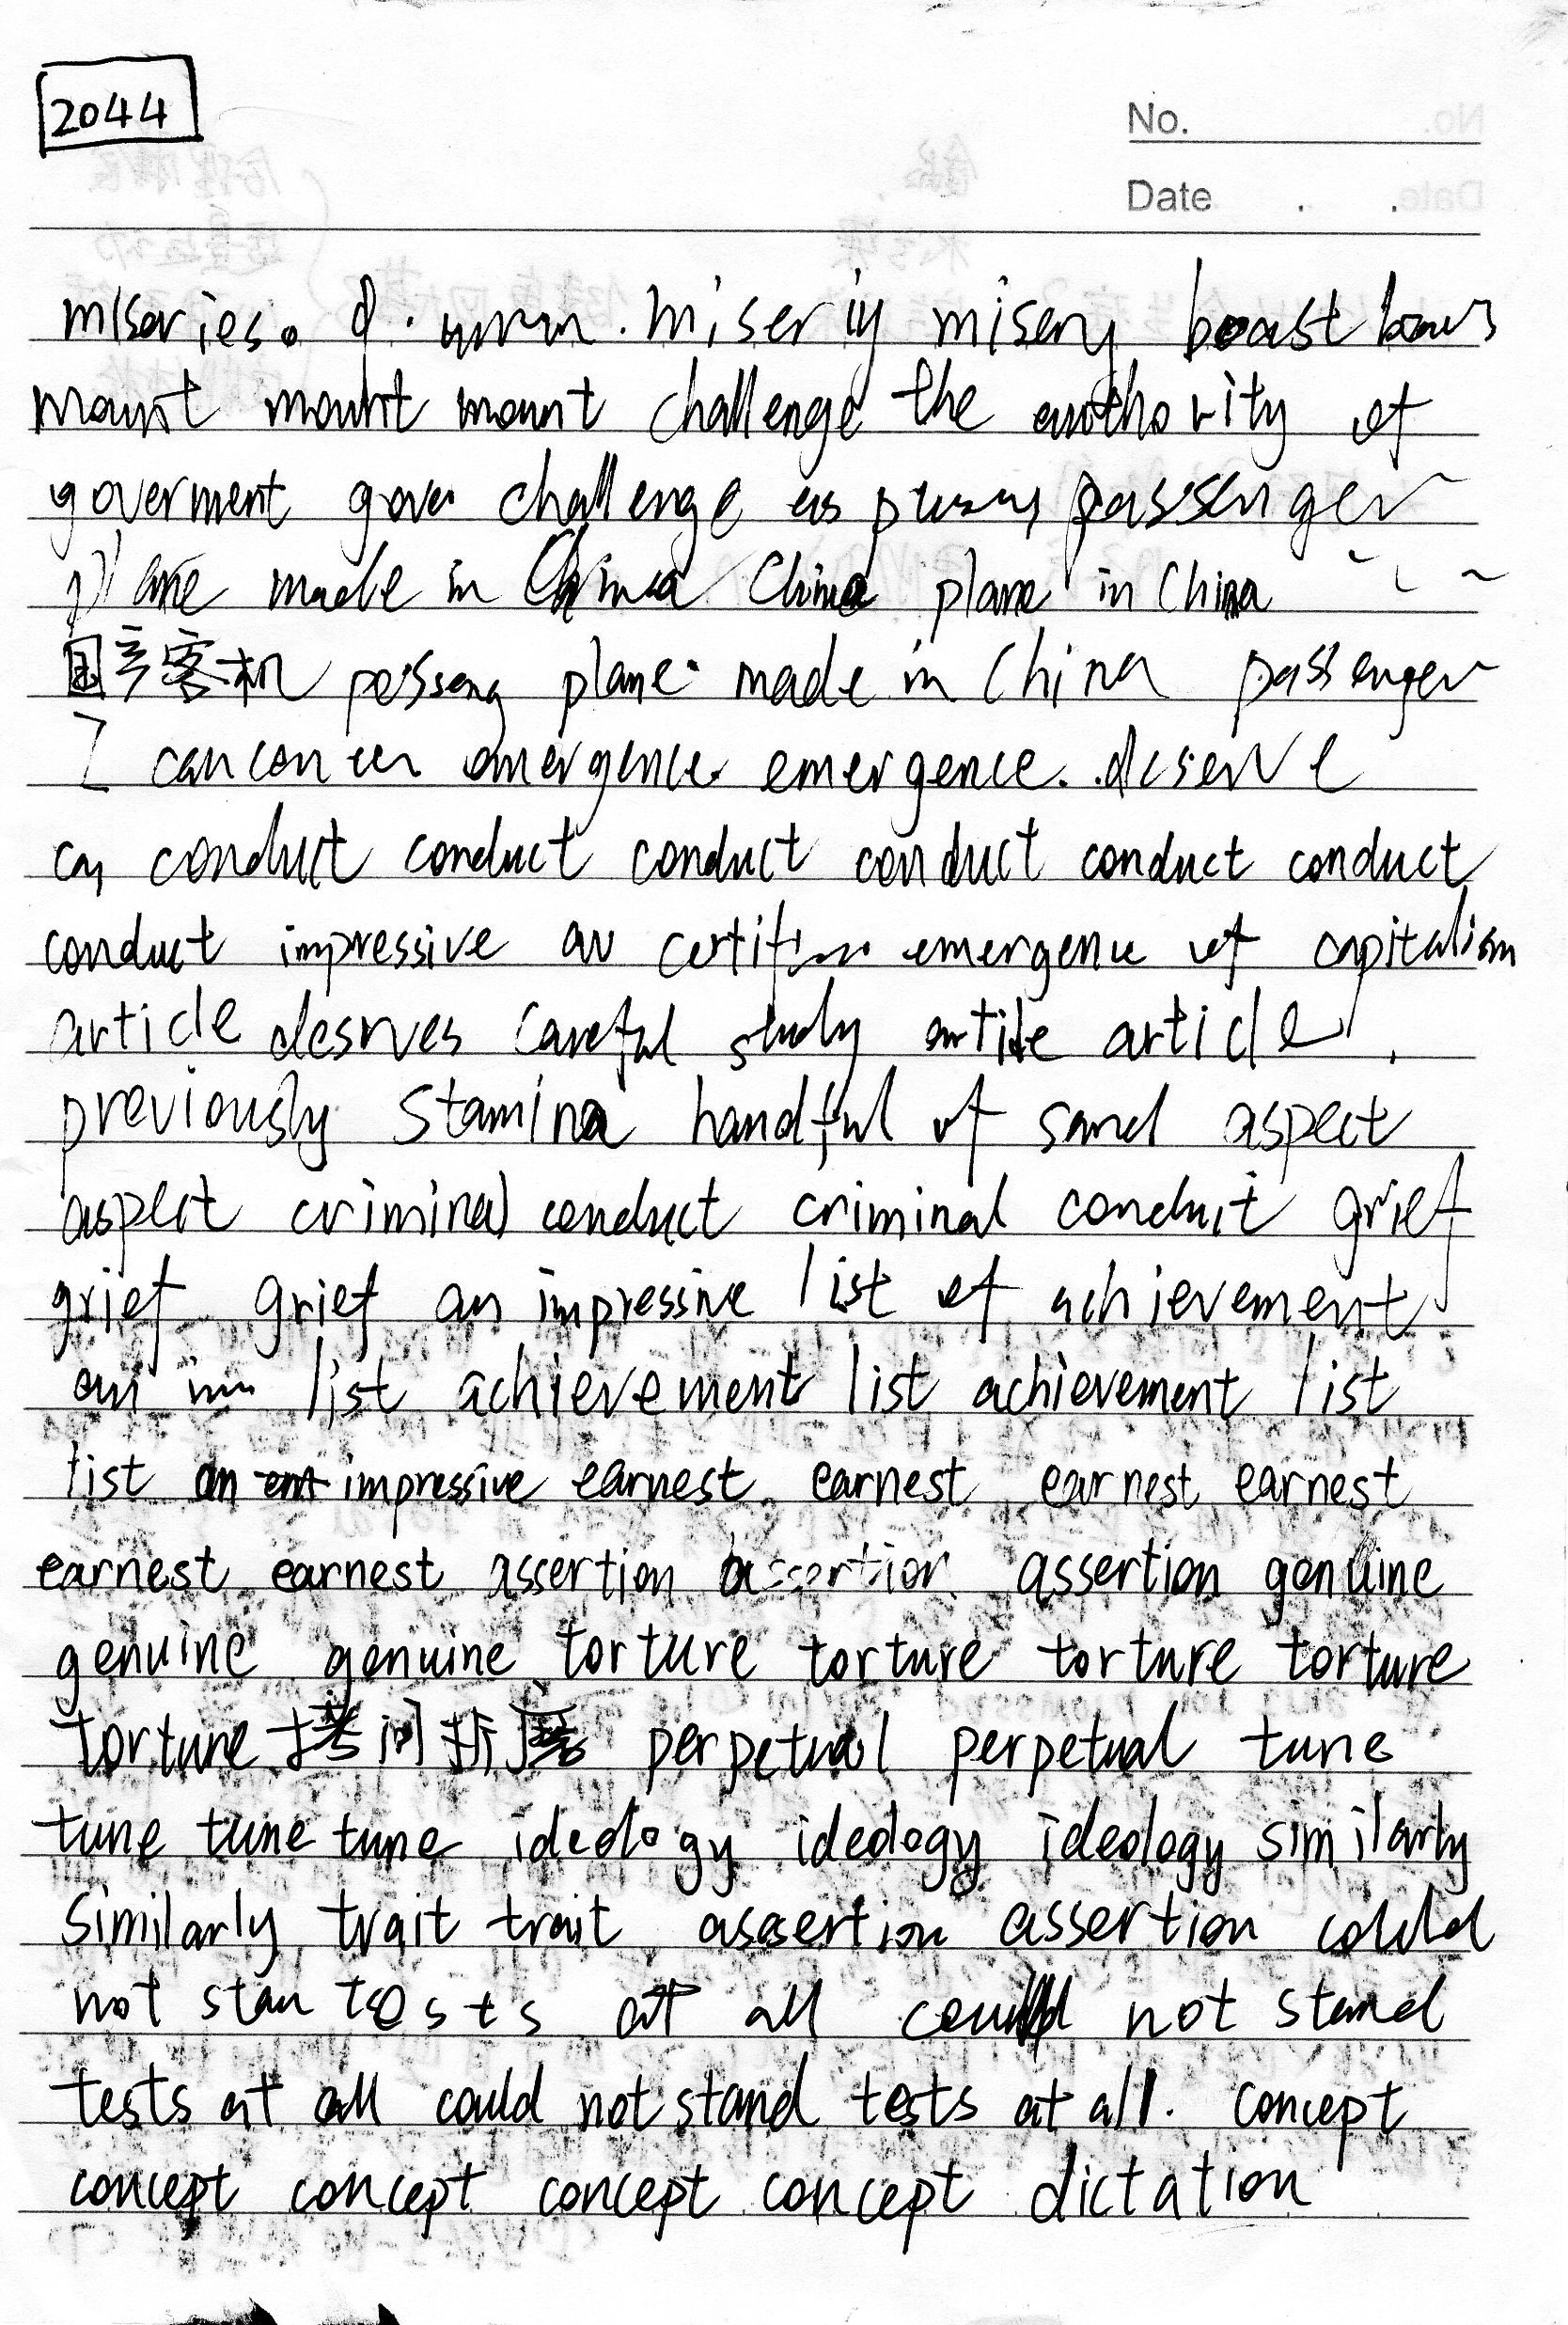 2044
No.
Date . .
miseries. miseriy misery boast
mount mount mount challenge the authority of
goverment gove challenge as passenger
plane made in China China plane in China
国产客机 passeng plane made in China passenger
emergence emergence. deserve
conduct conduct conduct conduct conduct conduct
conduct impressive emergence of capitalism
article desrves careful study article article
previously stamina handful of sand aspect
aspect criminal conduct criminal conduct grief
grief grief an impressive list of achievement
an list achievement list achievement list
list an impressive earnest earnest earnest earnest
earnest earnest assertion assertion assertion genuine
genuine genuine torture torture torture torture
torture 拷问折磨 perpetual perpetual tune
tune tune tune ideology ideology ideology similarly
similarly trait trait assertion assertion could
not stan tests at all could not stand
tests at all could not stand tests at all. concept
concept concept concept concept dictation